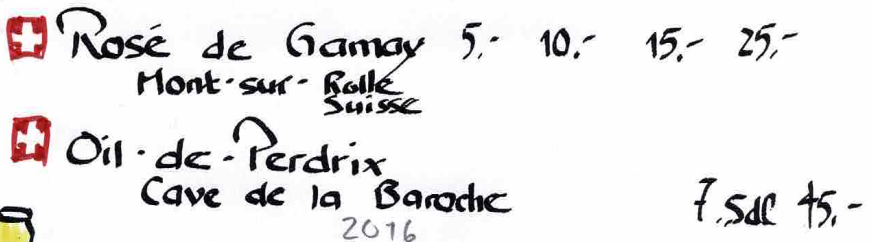 Rosé de Gamay 5.- 10.- 15.- 25.-
Mont-sur-Rolle
Suisse
Oil-de-Perdrix
Cave de la Baroche
7.5dl 45.-
2016